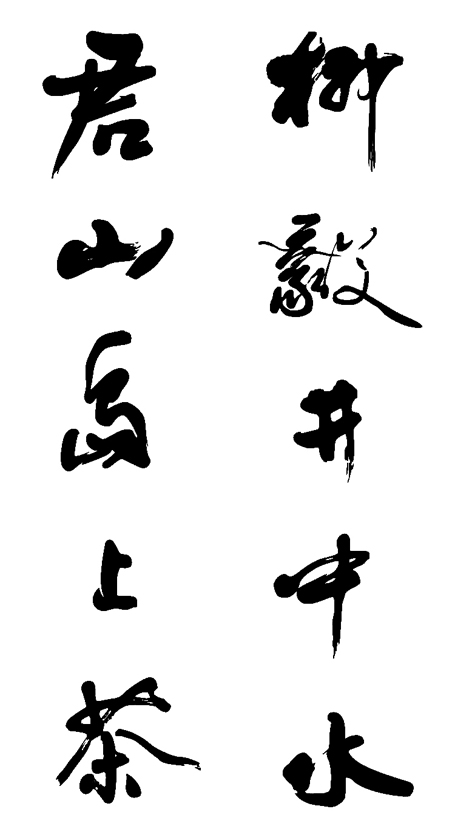 柳毅井中水
君山岛上茶